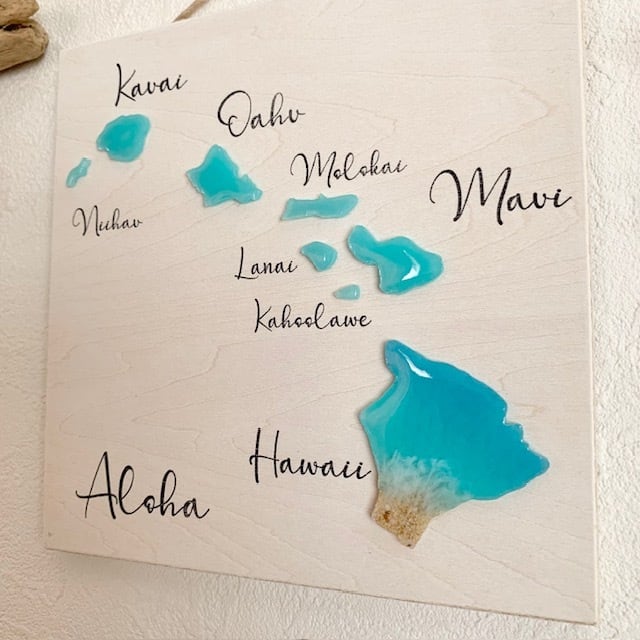 Kauai
Oahu
Molokai
Maui
Niihau
Lanai
Kahoolawe
Hawaii
Aloha